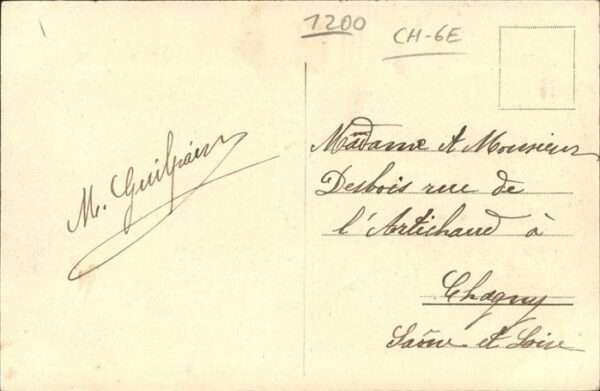 1200
CH-6E
M.
Madame et Monsieur
Desbois rue de
l'Artichaud à
Chagny
Saône et Loire